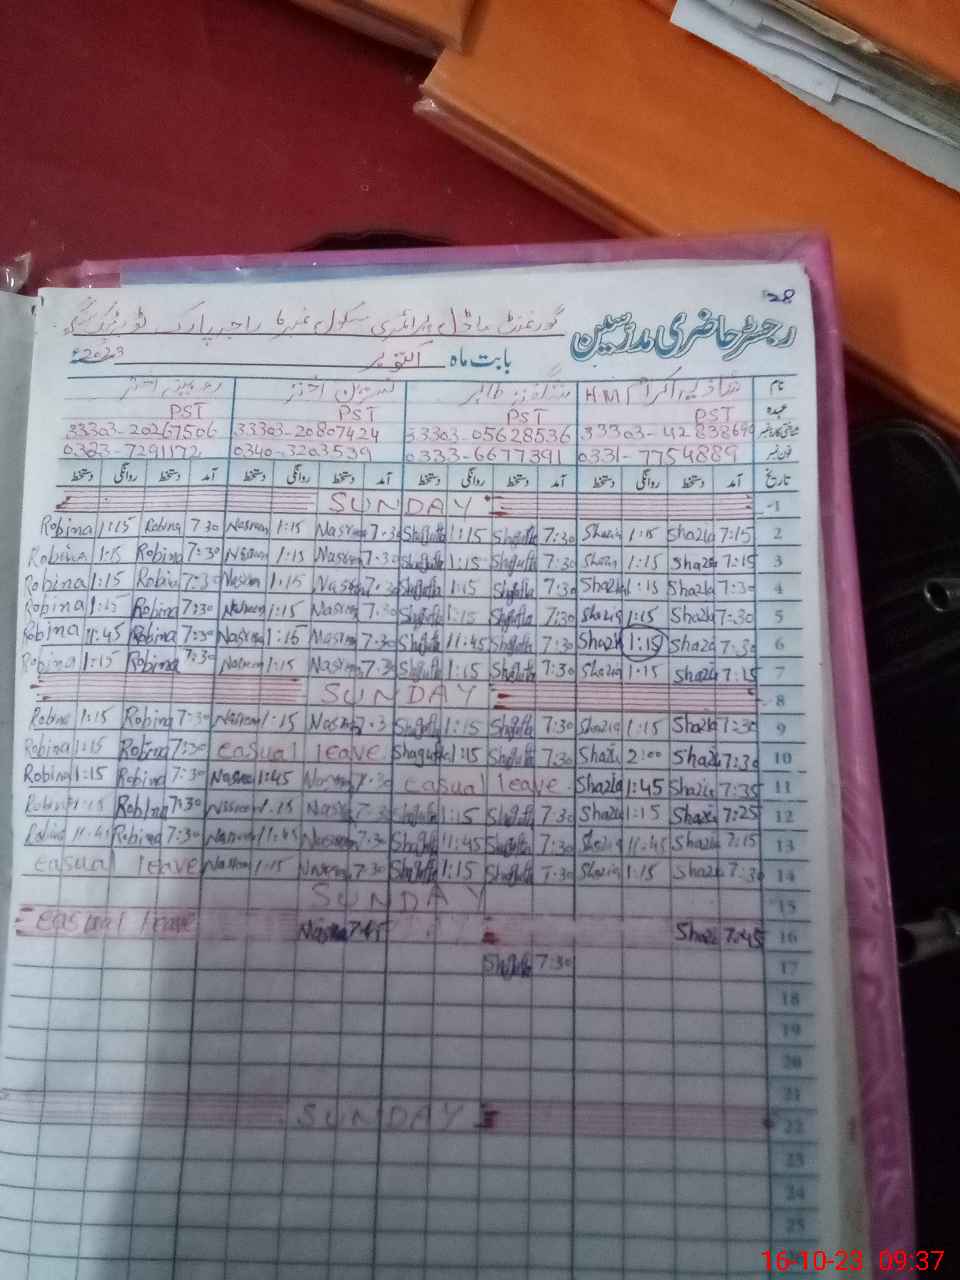 28
رجسٹر حاضری مدرسین گورنمنٹ ماڈل پرائمری سکول نمبر راجہ پارک
بابت ماہ اکتوبر 2023ء
نام شازیہ اکرام HM شگفتہ طاہر نسرین اختر روبینہ اختر
عہدہ PST PST PST PST
شناختی کارڈ نمبر 33303-4283869 33303-05628536 33303-20807424 33303-20267506
فون نمبر 0331-7754889 0333-6677391 0340-3203539 0323-7291172
تاریخ آمد دستخط روانگی دستخط آمد دستخط روانگی دستخط آمد دستخط روانگی دستخط آمد دستخط روانگی دستخط
SUNDAY 1
Robina 1:15 Robina 7 30 Nasreen 1:15 Nasreen 7:30 Shgufta 1:15 Shgufta 7:30 Shazia 1:15 Shazia 7:15 2
Robina 1:15 Robina 7:30 Nasreen 1:15 Nasreen 7:30 Shgufta 1:15 Shgufta 7:30 Shazia 1:15 Shazia 7:15 3
Robina 1:15 Robina 7:30 Nasreen 1:15 Nasreen 7:30 Shgufta 1:15 Shgufta 7:30 Shazia 1:15 Shazia 7:30 4
Robina 1:15 Robina 7:30 Nasreen 1:15 Nasreen 7:30 Shgufta 1:15 Shgufta 7:30 Shazia 1:15 Shazia 7:30 5
Robina 11:45 Robina 7:30 Nasreen 1:16 Nasreen 7:30 Shgufta 11:45 Shgufta 7:30 Shazia 1:15 Shazia 7:30 6
Robina 1:15 Robina 7:30 Nasreen 1:15 Nasreen 7:30 Shgufta 1:15 Shgufta 7:30 Shazia 1:15 Shazia 7:15 7
SUNDAY 8
Robina 1:15 Robina 7:30 Nasreen 1:15 Nasreen 7:3 Shgufta 1:15 Shgufta 7:30 Shazia 1:15 Shazia 7:30 9
Robina 1:15 Robina 7:30 casual leave Shagufta 1:15 Shgufta 7:30 Shazia 2:00 Shazia 7:30 10
Robina 1:15 Robina 7:30 Nasreen 1:45 Nasreen 7:30 casual leave Shazia 1:45 Shazia 7:35 11
Robina 1:15 Robina 7:30 Nasreen 1:15 Nasreen 7:30 Shgufta 1:15 Shgufta 7:30 Shazia 1:15 Shazia 7:25 12
Robina 11:45 Robina 7:30 Nasreen 11:45 Nasreen 7:30 Shgufta 11:45 Shgufta 7:30 Shazia 11:45 Shazia 7:15 13
casual leave Nasreen 1:15 Nasreen 7:30 Shgufta 1:15 Shgufta 7:30 Shazia 1:15 Shazia 7:30 14
SUNDAY 15
casual leave Nasreen 7:45 Shazia 7:45 16
Shgufta 7:30 17
18
19
20
21
SUNDAY 22
23
24
25
16-10-23 09:37